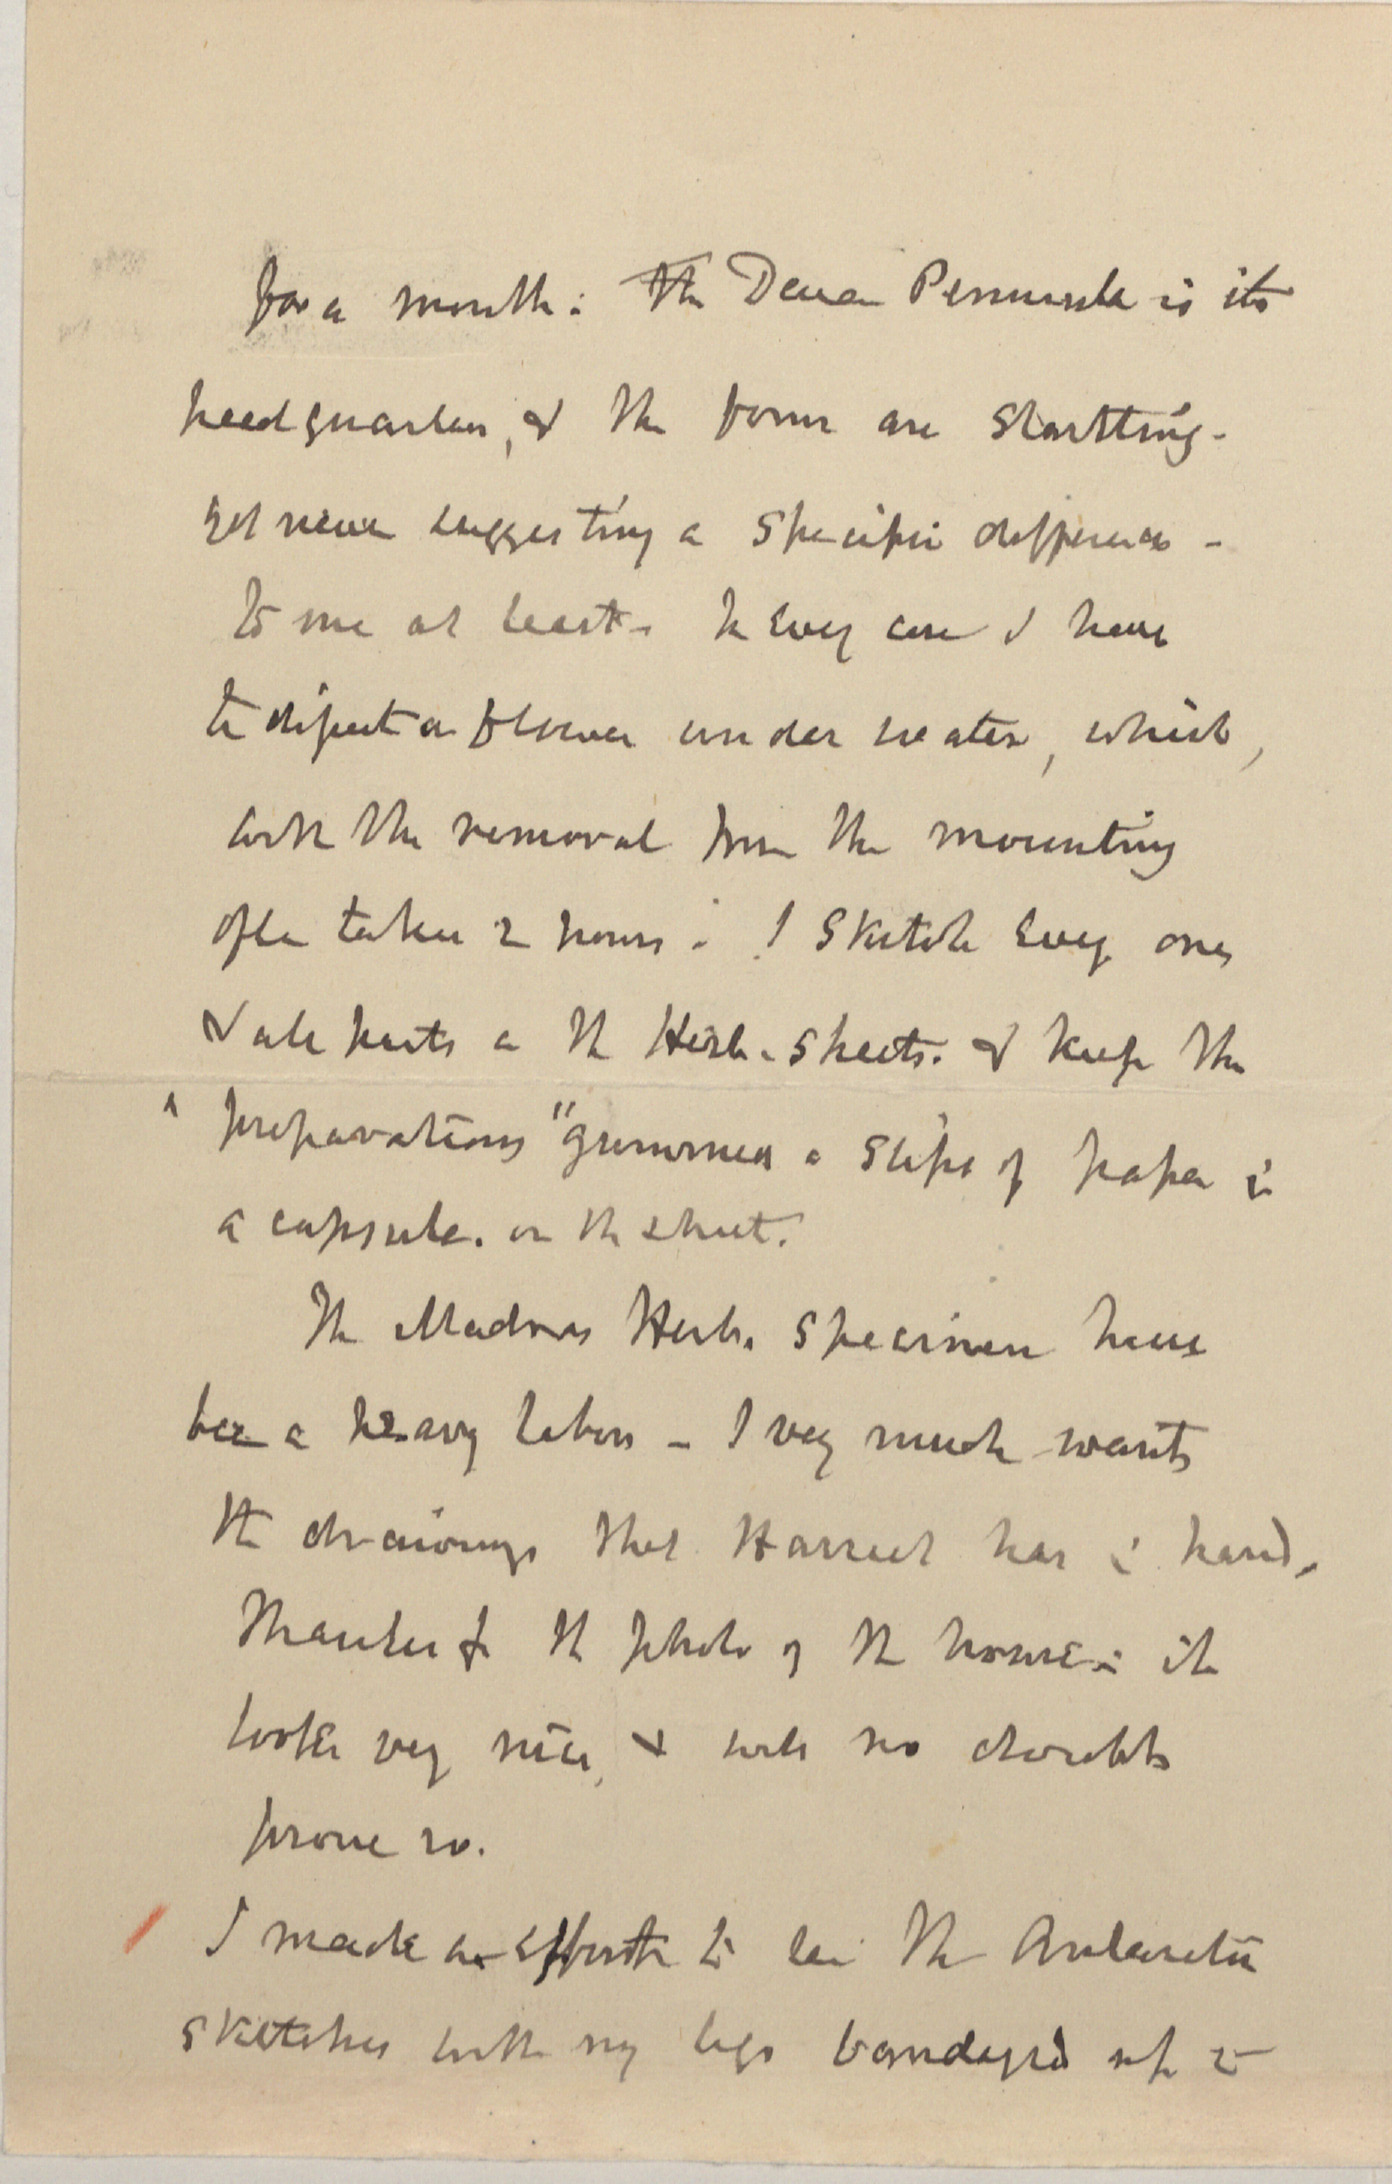 for a month: The Deccan Peninsula is its
headquarters, & the forms are startting -
yet never suggesting a specific difference -
to me at least - In every case I have
to dissect a flower under water, which,
with the removal from the mounting
often takes 2 hours. I sketch every one,
& all parts on the Herb. sheets. & keep the
"preparations" gummed on slips of paper in
a capsule. on the sheet.
The Madras Herb. specimens have
been a heavy labor - I very much want
the drawings that Harriet has in hand.
Thanks for the photo of the house: it
looks very nice, & will no doubt
prove so.
I made an effort to see the Antarctic
sketches with my legs bandaged up to